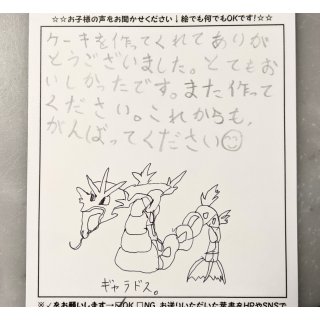 ☆☆お子様の声をお聞かせください↓絵でも何でもOKです!☆☆
ケーキを作ってくれてありが
とうございました。とてもお
いしかったです。また作って
ください。これからも、
がんばってください☺
ギャラドス。
※✓をお願いします→☑OK □NG お送りいただいた葉書をHPやSNSで